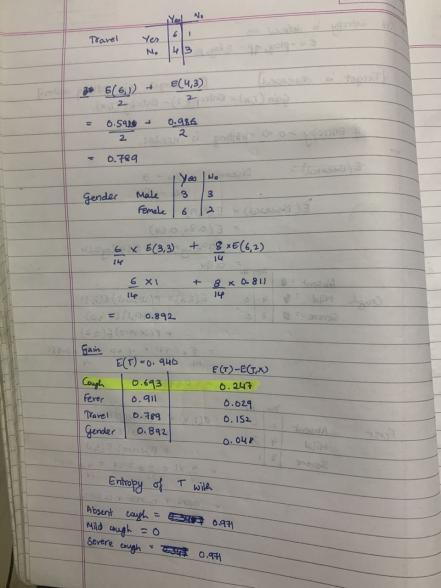 Yes No
Travel Yes 6 1
No 4 3
E(6,1)/2 + E(4,3)/2
= 0.59/2 + 0.986/2
= 0.789
Yes No
Gender Male 3 3
Female 6 2
6/14 x E(3,3) + 8/14 x E(6,2)
6/14 x 1 + 8/14 x 0.811
= 0.892
Gain
E(T) = 0.940
E(T)-E(T,X)
Cough 0.693 0.247
Fever 0.911 0.029
Travel 0.789 0.152
Gender 0.892 0.048
Entropy of T with
Absent cough = 0.971
Mild cough = 0
Severe cough = 0.971